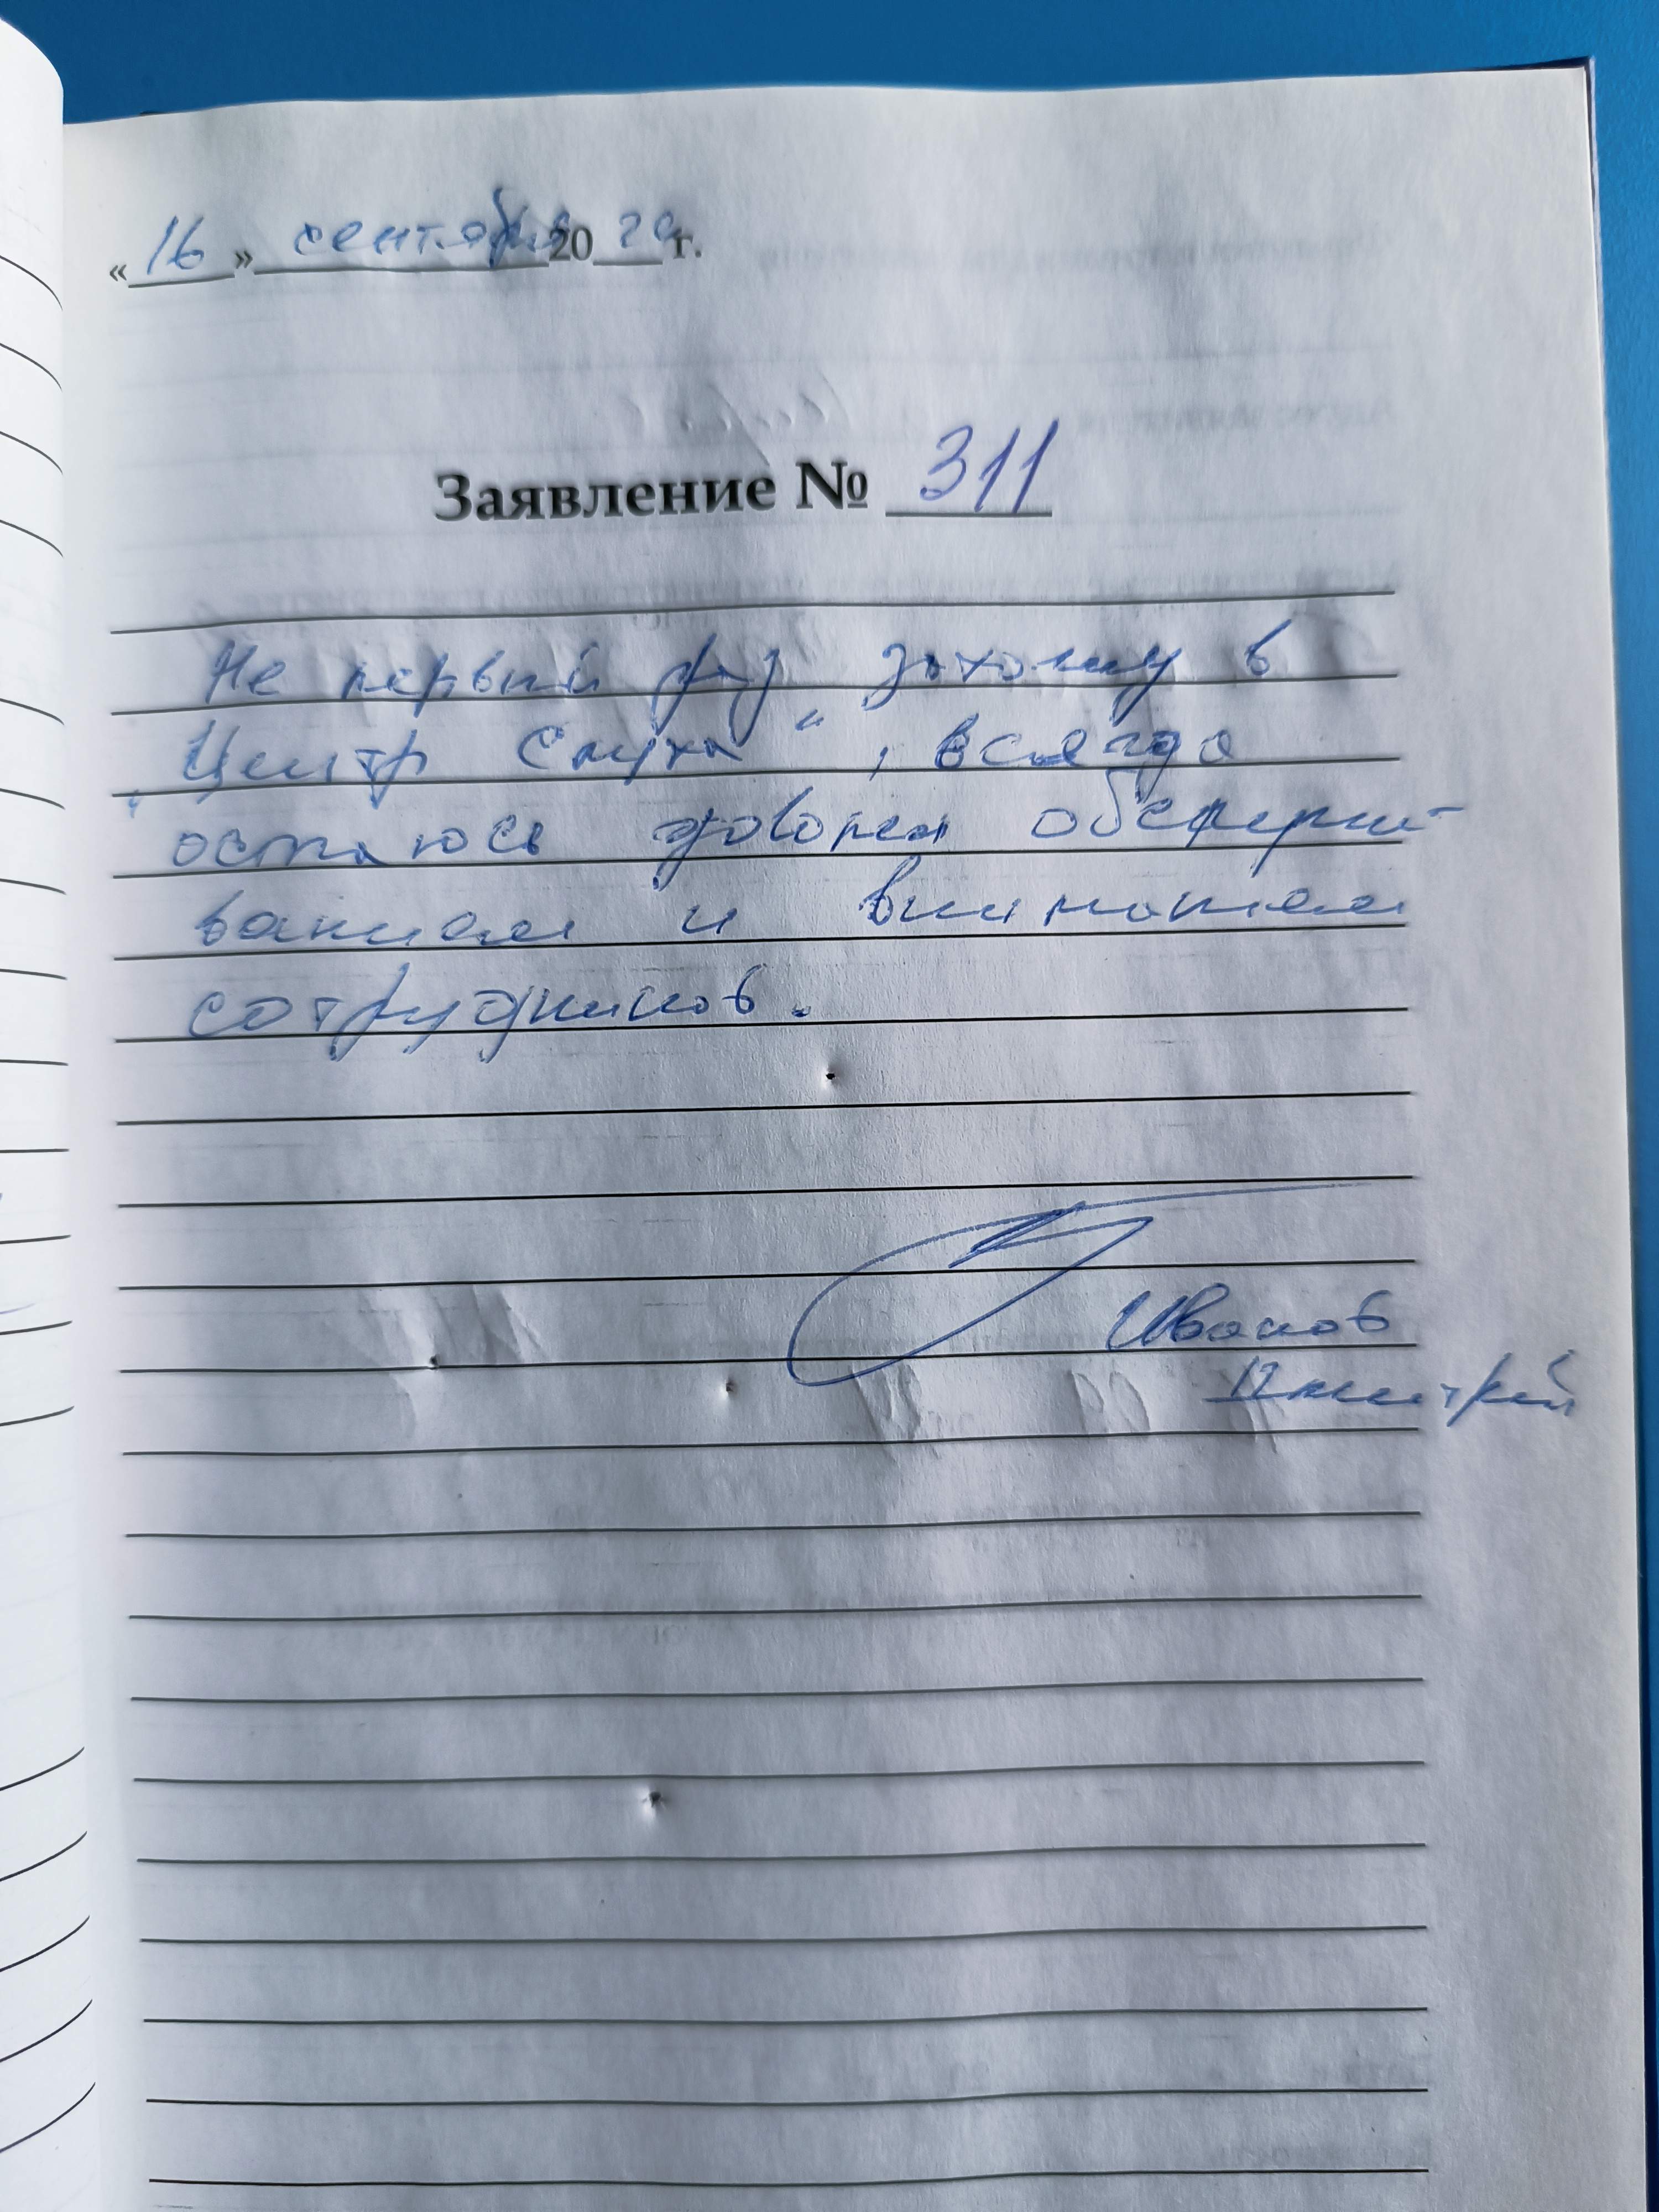 «16» сентября 2020 г.
Заявление № 311
Не первый раз захожу в
"Центр Слуха", всегда
остаюсь доволен обслужи-
ванием и вниманием
сотрудников.
Иванов
Дмитрий